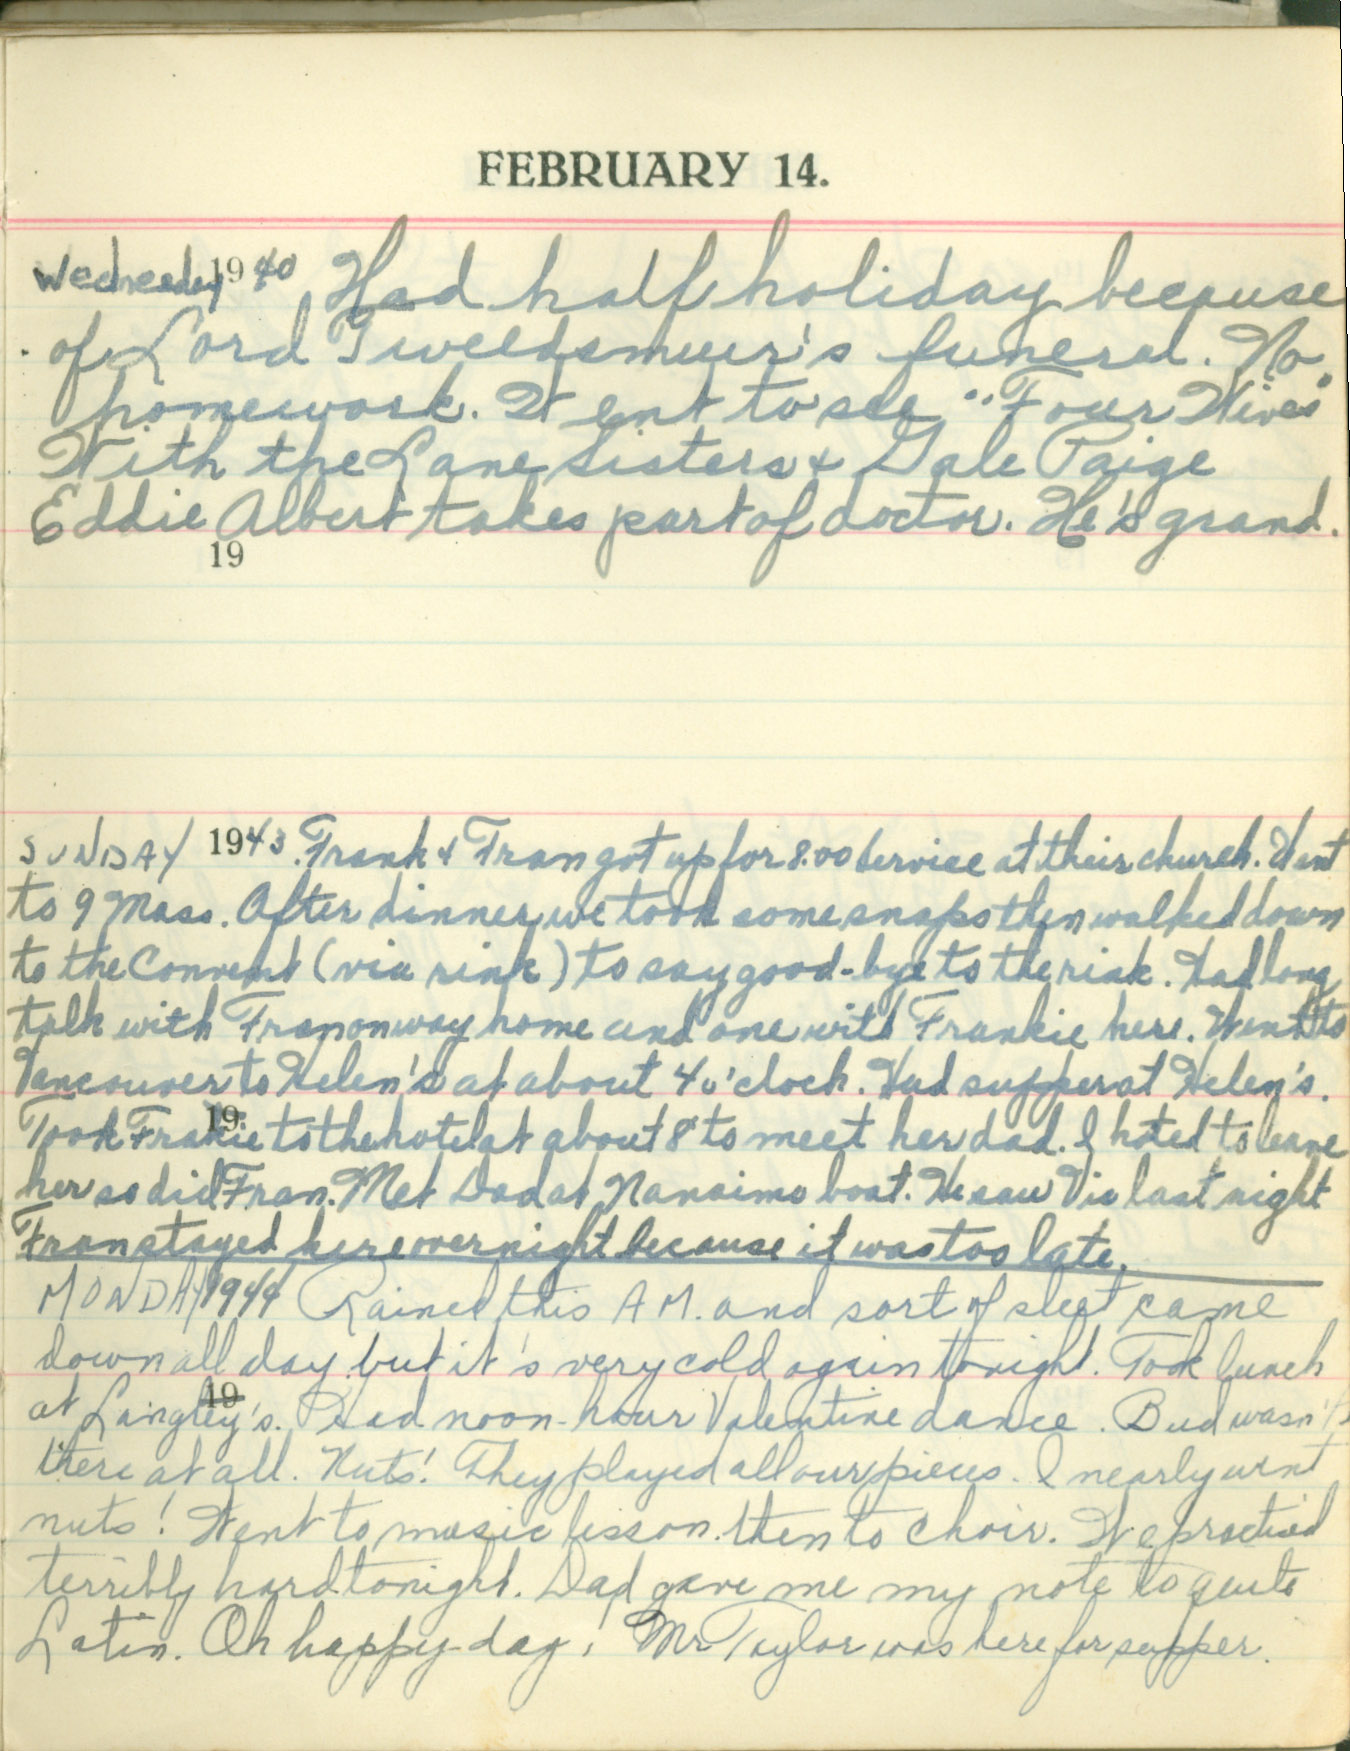 FEBRUARY 14.
Wednesday 1940 Had half holiday because
of Lord Tweedsmuir's funeral. No
homework. Went to see "Four Wives"
With the Lane Sisters & Gale Paige
Eddie Albert takes part of doctor. He's grand.
19
SUNDAY 1943. Frank & Fran got up for 8.00 service at their church. Went
to 9 Mass. After dinner we took some snaps then walked down
to the Convent (via rink) to say good-bye to the rink. Had long
talk with Fran on way home and one with Frankie here. Went to
Vancouver to Helen's at about 4 o'clock. Had supper at Helen's.
19
Took Frankie to the hotel at about 8 to meet her dad. I hated to leave
her so did Fran. Met Dad at Nanaimo boat. He saw Vic last night
Fran stayed here overnight because it was too late.
MONDAY 1944 Rained this A.M. and sort of sleet came
down all day but it's very cold again tonight. Took lunch
19
at Langley's. Had noon-hour Valentine dance. Bud wasn't
there at all. Nuts! They played all our pieces. I nearly went
nuts! Went to music lesson then to choir. We practised
terribly hard tonight. Dad gave me my note to quit
Latin. Oh happy day! Mr Taylor was here for supper.